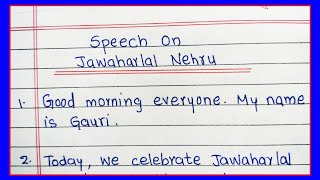 Speech On
Jawaharlal Nehru
1. Good morning everyone. My name
is Gauri.
2. Today, we celebrate Jawaharlal